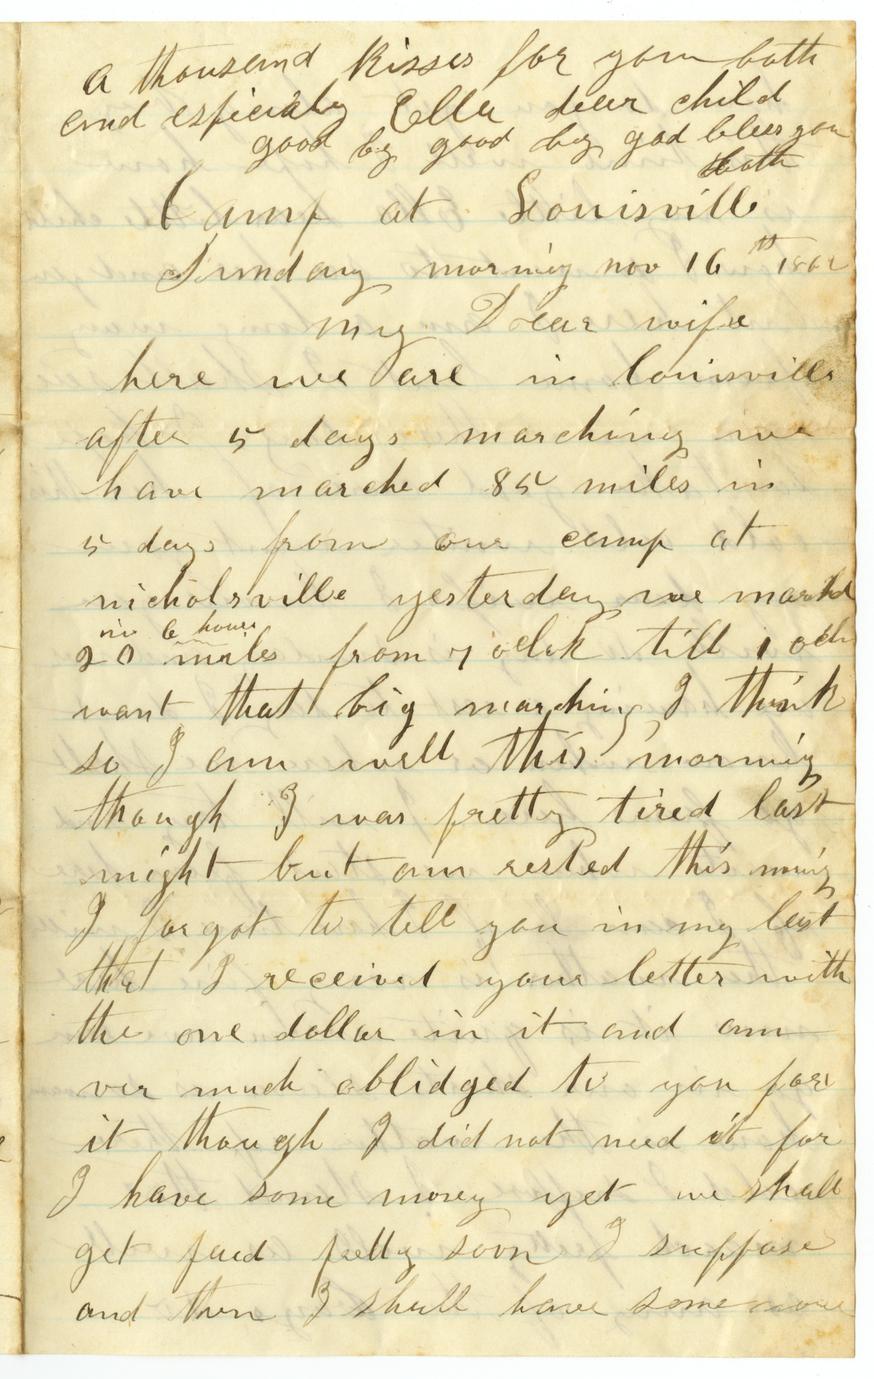 a thousand kisses for you both
and espicialy Ella dear child
good by good by god bless you
both
Camp at Louisville
Sunday morning nov 16th 1862
My Dear wife
here we are in louisville
after 5 days marching we
have marched 85 miles in
5 days from our camp at
nicholsville yesterday we marchd
in 6 hours
20 miles from 7 oclok till 1 ock
want that big marching I think
so I am well this morning
though I was pretty tired last
night but am rested this
I forgot to tell you in my last
that I received your letter with
the one dollar in it and am
ver much oblidged to you for
it though I did not need it for
I have some money yet we shall
get paid pretty soon I suppose
and then I shall have some more